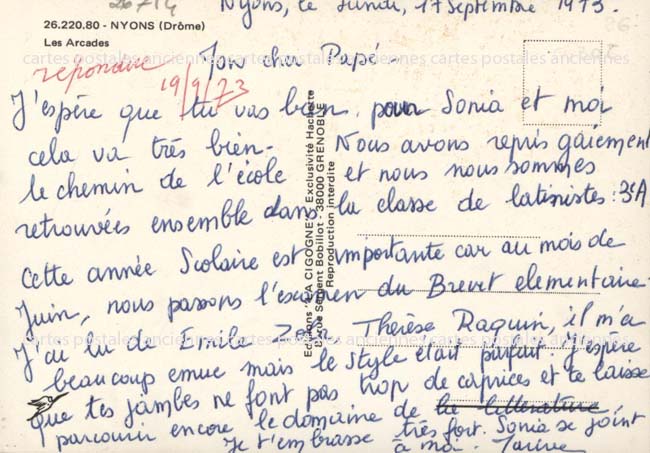 26.220.80 - NYONS (Drôme)
Les Arcades
Nyons, le lundi, 17 Septembre 1973.
cher Papé -
repondue 19/9/73
J'espère que tu vas bien, pour Sonia et moi
cela va très bien - Nous avons repris gaiement
le chemin de l'école et nous nous sommes
retrouvées ensemble dans la classe de latinistes : 3eA
Cette année Scolaire est importante car au mois de
Juin, nous passons l'examen du Brevet elementaire -
J'ai lu de Emile Zola Thérèse Raquin, il m'a
beaucoup emue mais le style était parfait. J'espère
que tes jambes ne font pas trop de caprices et te laisse
parcourir encore le domaine de la litterature
Je t'embrasse très fort. Sonia se joint
à moi.
Editions "LA CIGOGNE" Exclusivité Hachette
Rue Sergent Bobillot - 38000 GRENOBLE
Reproduction interdite
cartes postales anciennes cartes postales anciennes cartes postales anciennes
cartes postales anciennes cartes postales anciennes cartes postales anciennes